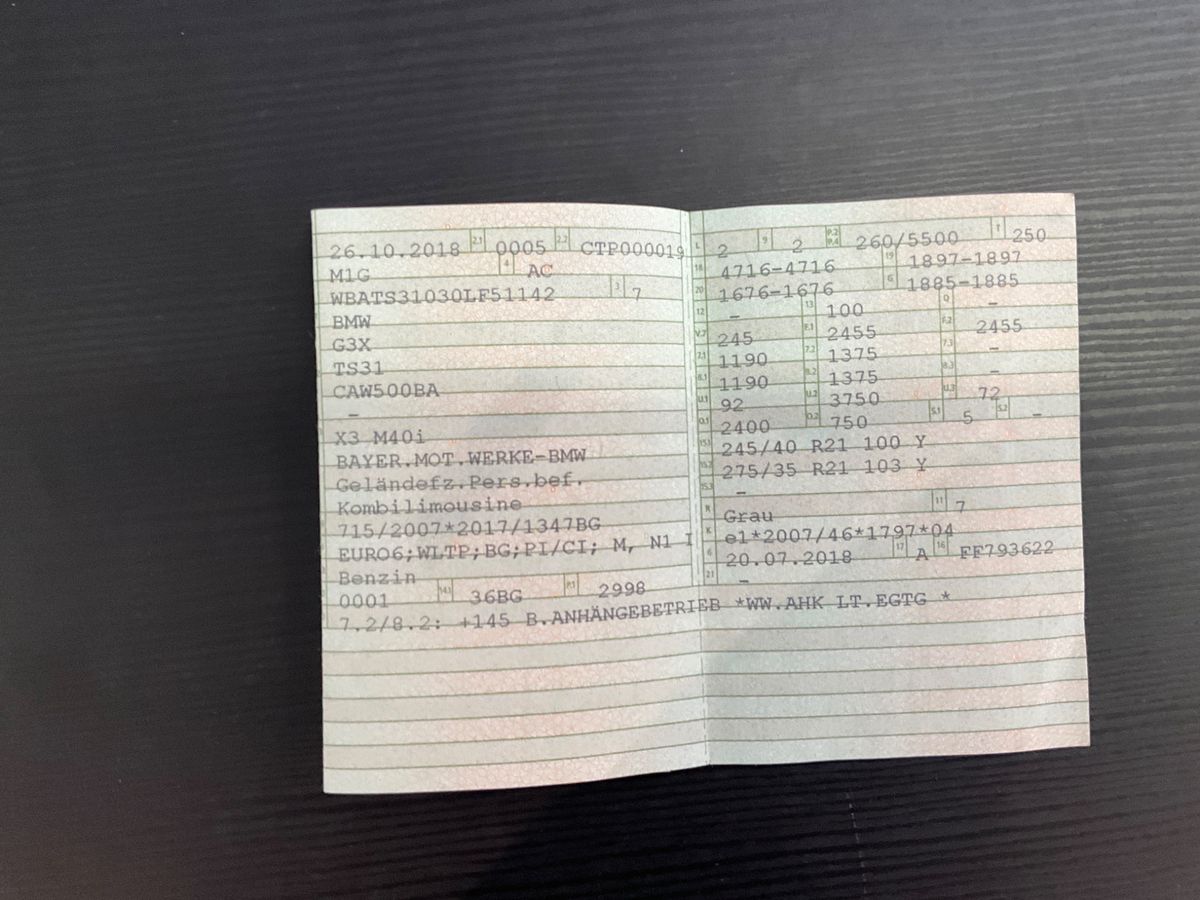 26.10.2018 2.1 0005 2.2 CTP000019
M1G 4 AC
WBATS31030LF51142 3 7
BMW
G3X
TS31
CAW500BA
–
X3 M40i
BAYER.MOT.WERKE-BMW
Geländefz.Pers.bef.
Kombilimousine
715/2007*2017/1347BG
EURO6;WLTP;BG;PI/CI; M, N1 I
Benzin
0001 14.1 36BG P.1 2998
L 2 9 2 P.2 P.4 260/5500 T 250
18 4716-4716 19 1897-1897
20 1676-1676 G 1885-1885
12 – 13 100 Q –
V.7 245 F.1 2455 F.2 2455
7.1 1190 7.2 1375 7.3 –
8.1 1190 8.2 1375 8.3 –
U.1 92 U.2 3750 U.3 72
O.1 2400 O.2 750 S.1 5 S.2 –
15.1 245/40 R21 100 Y
15.2 275/35 R21 103 Y
15.3 –
R Grau 11 7
K e1*2007/46*1797*04
6 20.07.2018 17 A 16 FF793622
21 –
7.2/8.2: +145 B.ANHÄNGEBETRIEB *WW.AHK LT.EGTG *